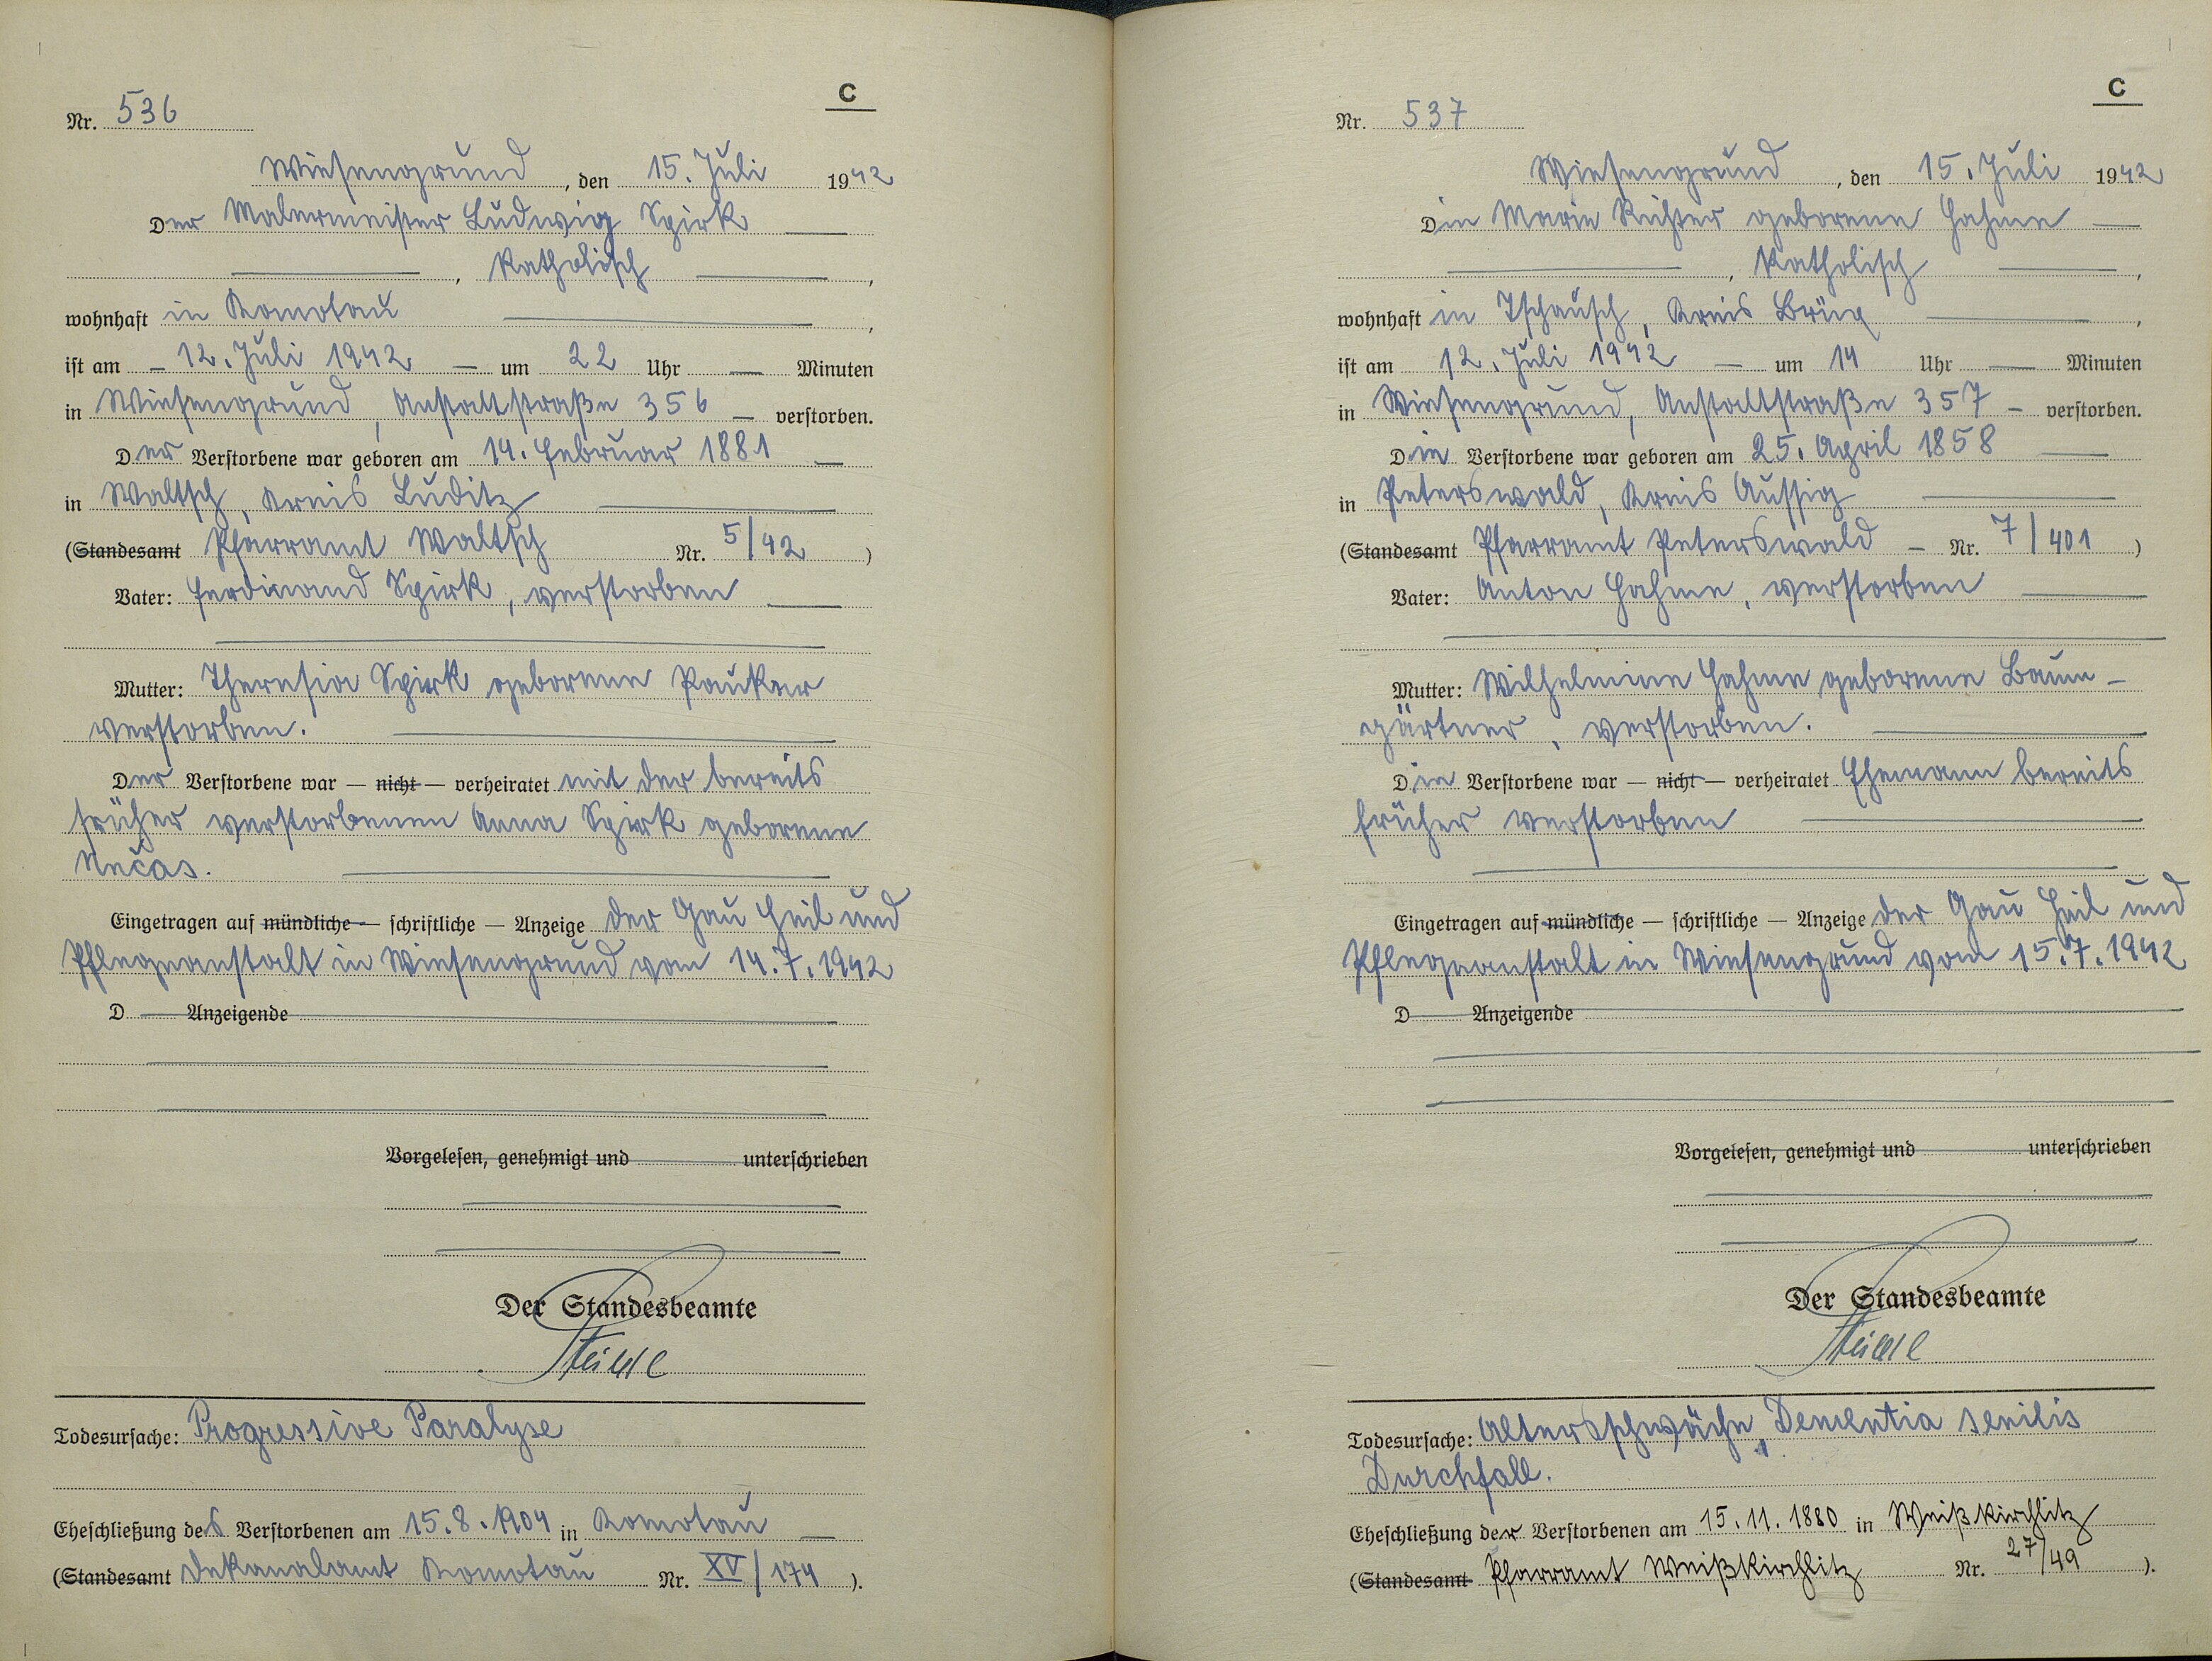 C
Nr. 536
Wiesengrund, den 15. Juli 1942
Der Malermeister Ludwig Spirk
, Katholisch ,
wohnhaft in Komotau ,
ist am 12. Juli 1942 um 22 Uhr — Minuten
in Wiesengrund, Anstaltstraße 356 verstorben.
Der Verstorbene war geboren am 14. Februar 1881
in Waltsch, Kreis Luditz
(Standesamt Pfarramt Waltsch Nr. 5/42 )
Vater: Ferdinand Spirk, verstorben
Mutter: Theresia Spirk geborene Pauker
verstorben.
Der Verstorbene war — nicht — verheiratet mit der bereits
früher verstorbenen Anna Spirk geborene
Nečas.
Eingetragen auf mündliche — schriftliche — Anzeige der Gau Heil und
Pflegeanstalt in Wiesengrund vom 14.7.1942
D Anzeigende
Vorgelesen, genehmigt und unterschrieben
Der Standesbeamte
Todesursache: Progressive Paralyse
Eheschließung des Verstorbenen am 15.8.1904 in Komotau
(Standesamt Dekanalamt Komotau Nr. XV/174 ).
C
Nr. 537
Wiesengrund, den 15. Juli 1942
Die Marie Richter geborene Hahme
, Katholisch ,
wohnhaft in Tschausch, Kreis Brüx ,
ist am 12. Juli 1942 um 14 Uhr — Minuten
in Wiesengrund, Anstaltstraße 357 verstorben.
Die Verstorbene war geboren am 25. April 1858
in Peterswald, Kreis Aussig
(Standesamt Pfarramt Peterswald Nr. 7/401 )
Vater: Anton Hahme, verstorben
Mutter: Wilhelmine Hahme geborene Baum-
gärtner, verstorben.
Die Verstorbene war — nicht — verheiratet Ehemann bereits
früher verstorben
Eingetragen auf mündliche — schriftliche — Anzeige der Gau Heil und
Pflegeanstalt in Wiesengrund vom 15.7.1942
D Anzeigende
Vorgelesen, genehmigt und unterschrieben
Der Standesbeamte
Todesursache: Altersschwäche, Dementia senilis
Durchfall.
Eheschließung der Verstorbenen am 15.11.1880 in Weißkirchlitz
(Standesamt Pfarramt Weißkirchlitz Nr. 27/49 ).